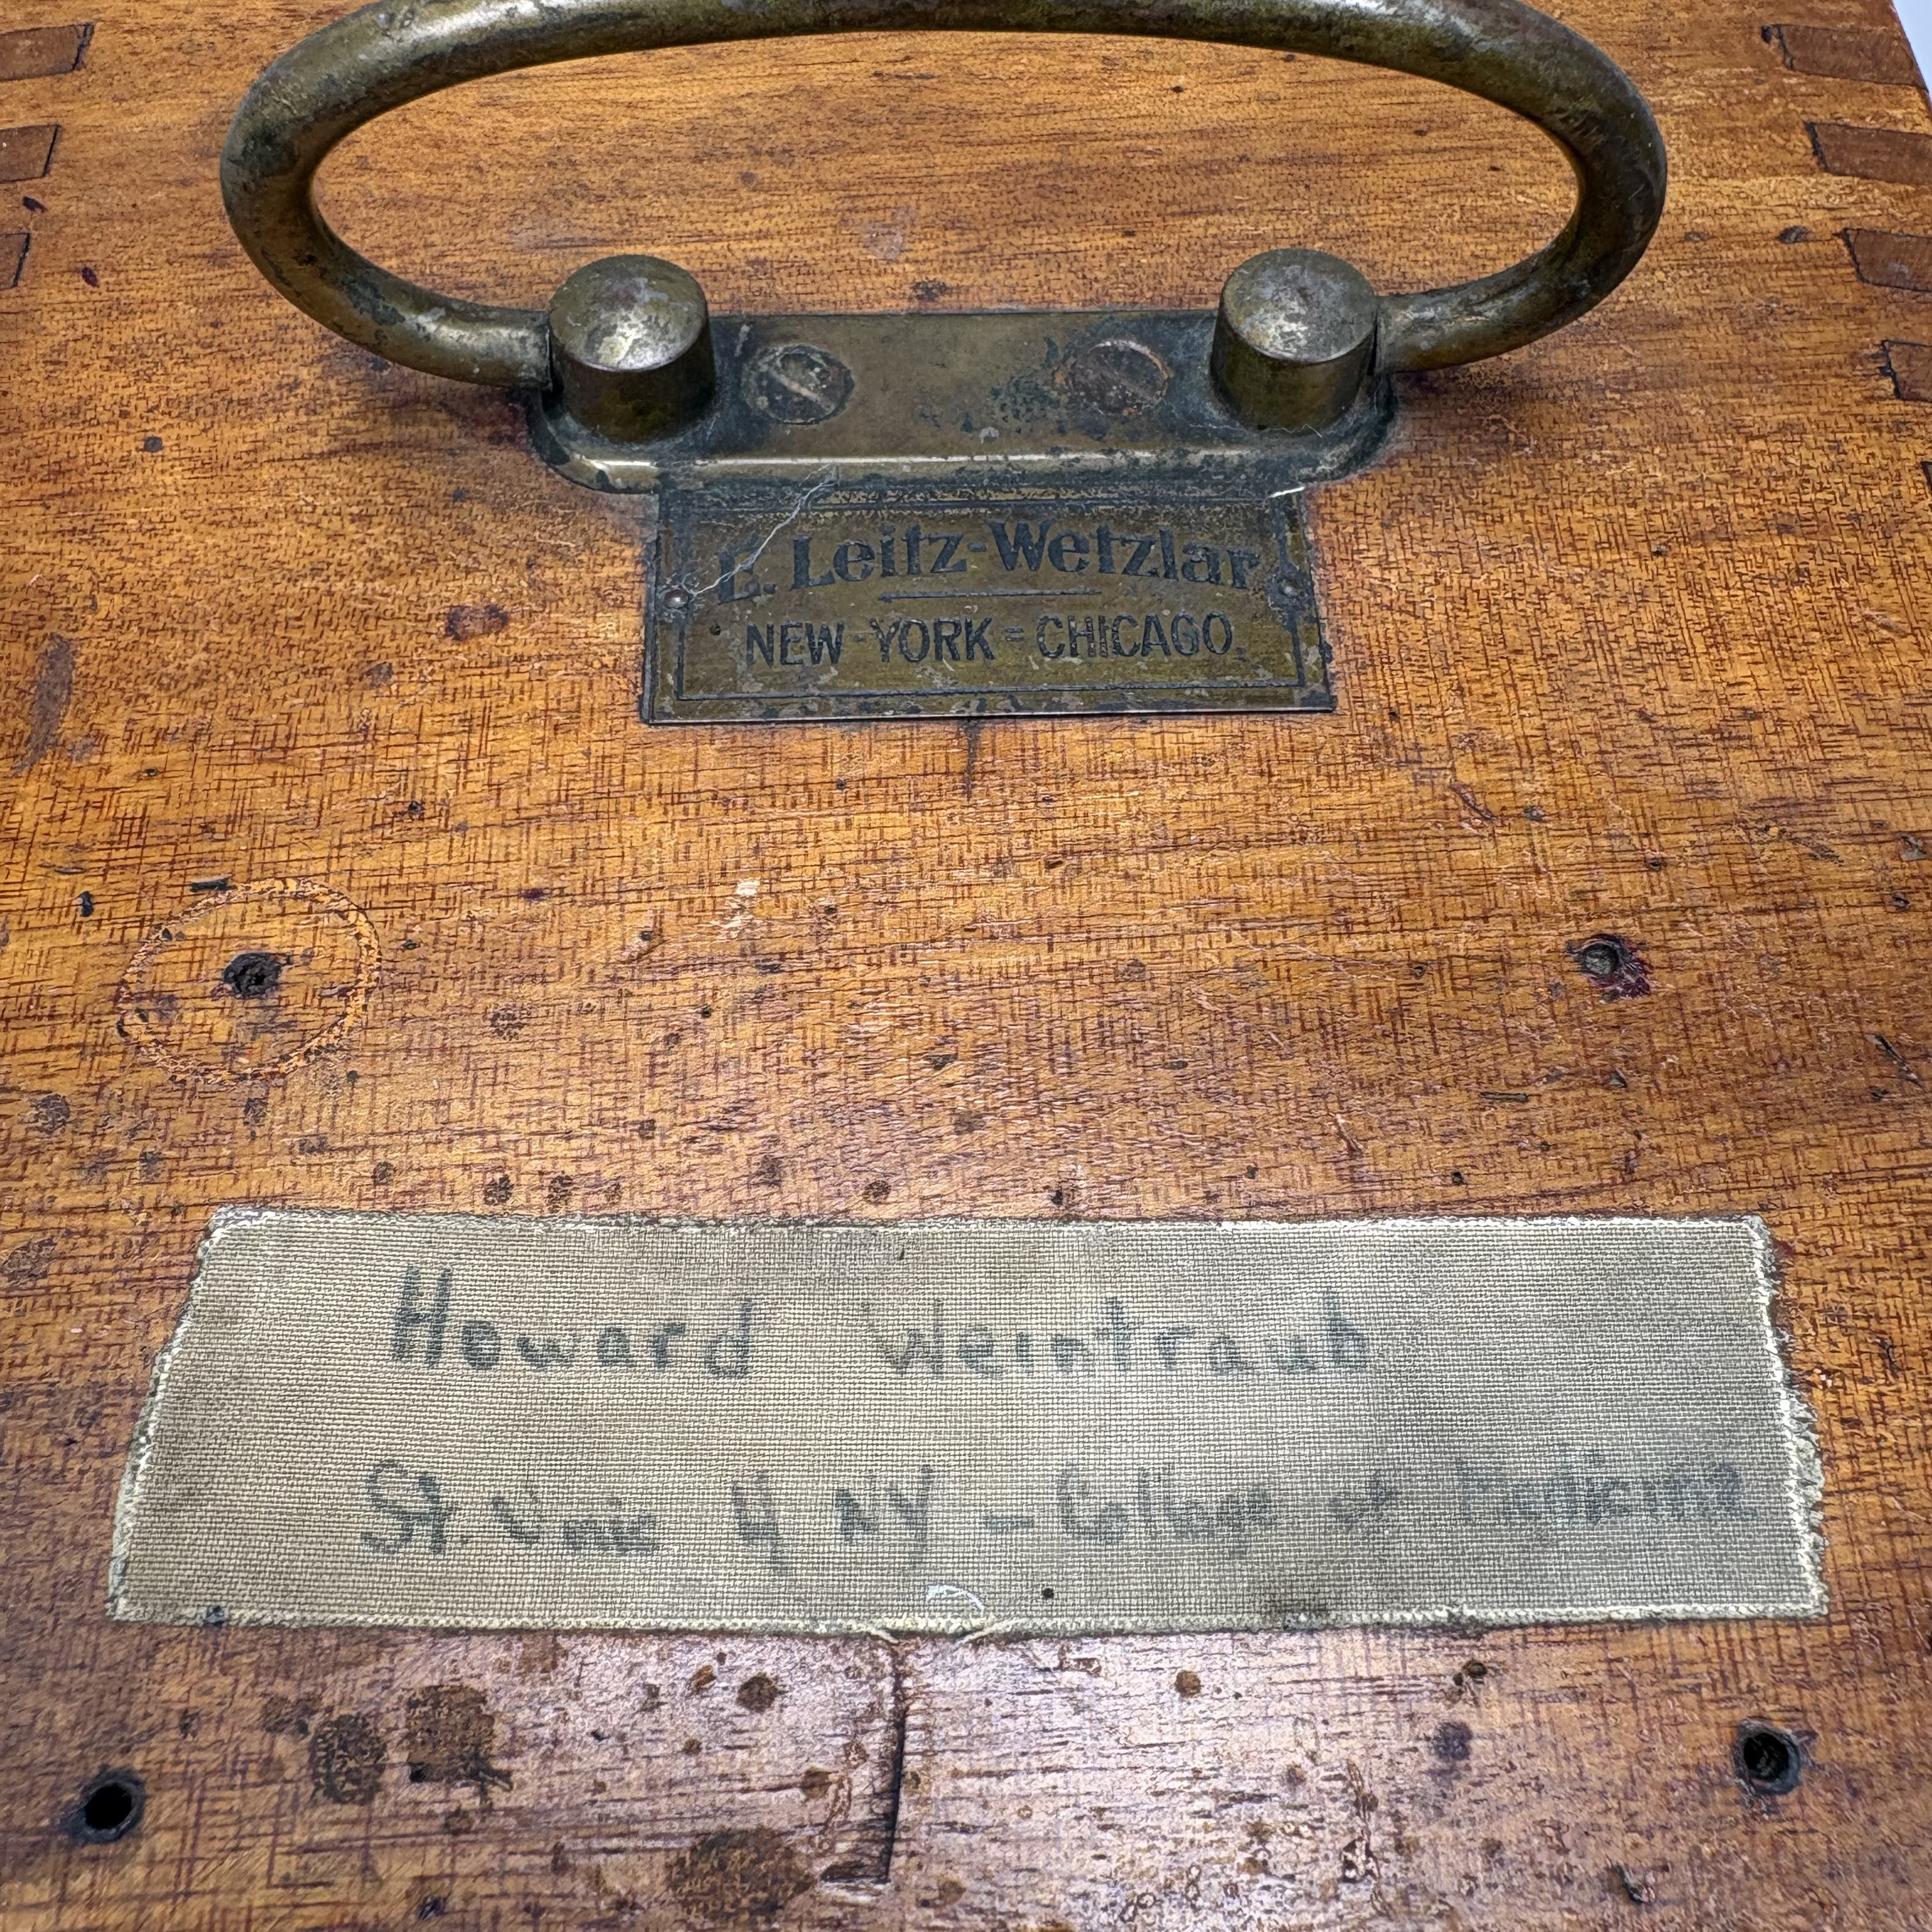 E. Leitz-Wetzlar
NEW-YORK=CHICAGO.
Howard Weintraub
St. Univ of NY - College of Medicine